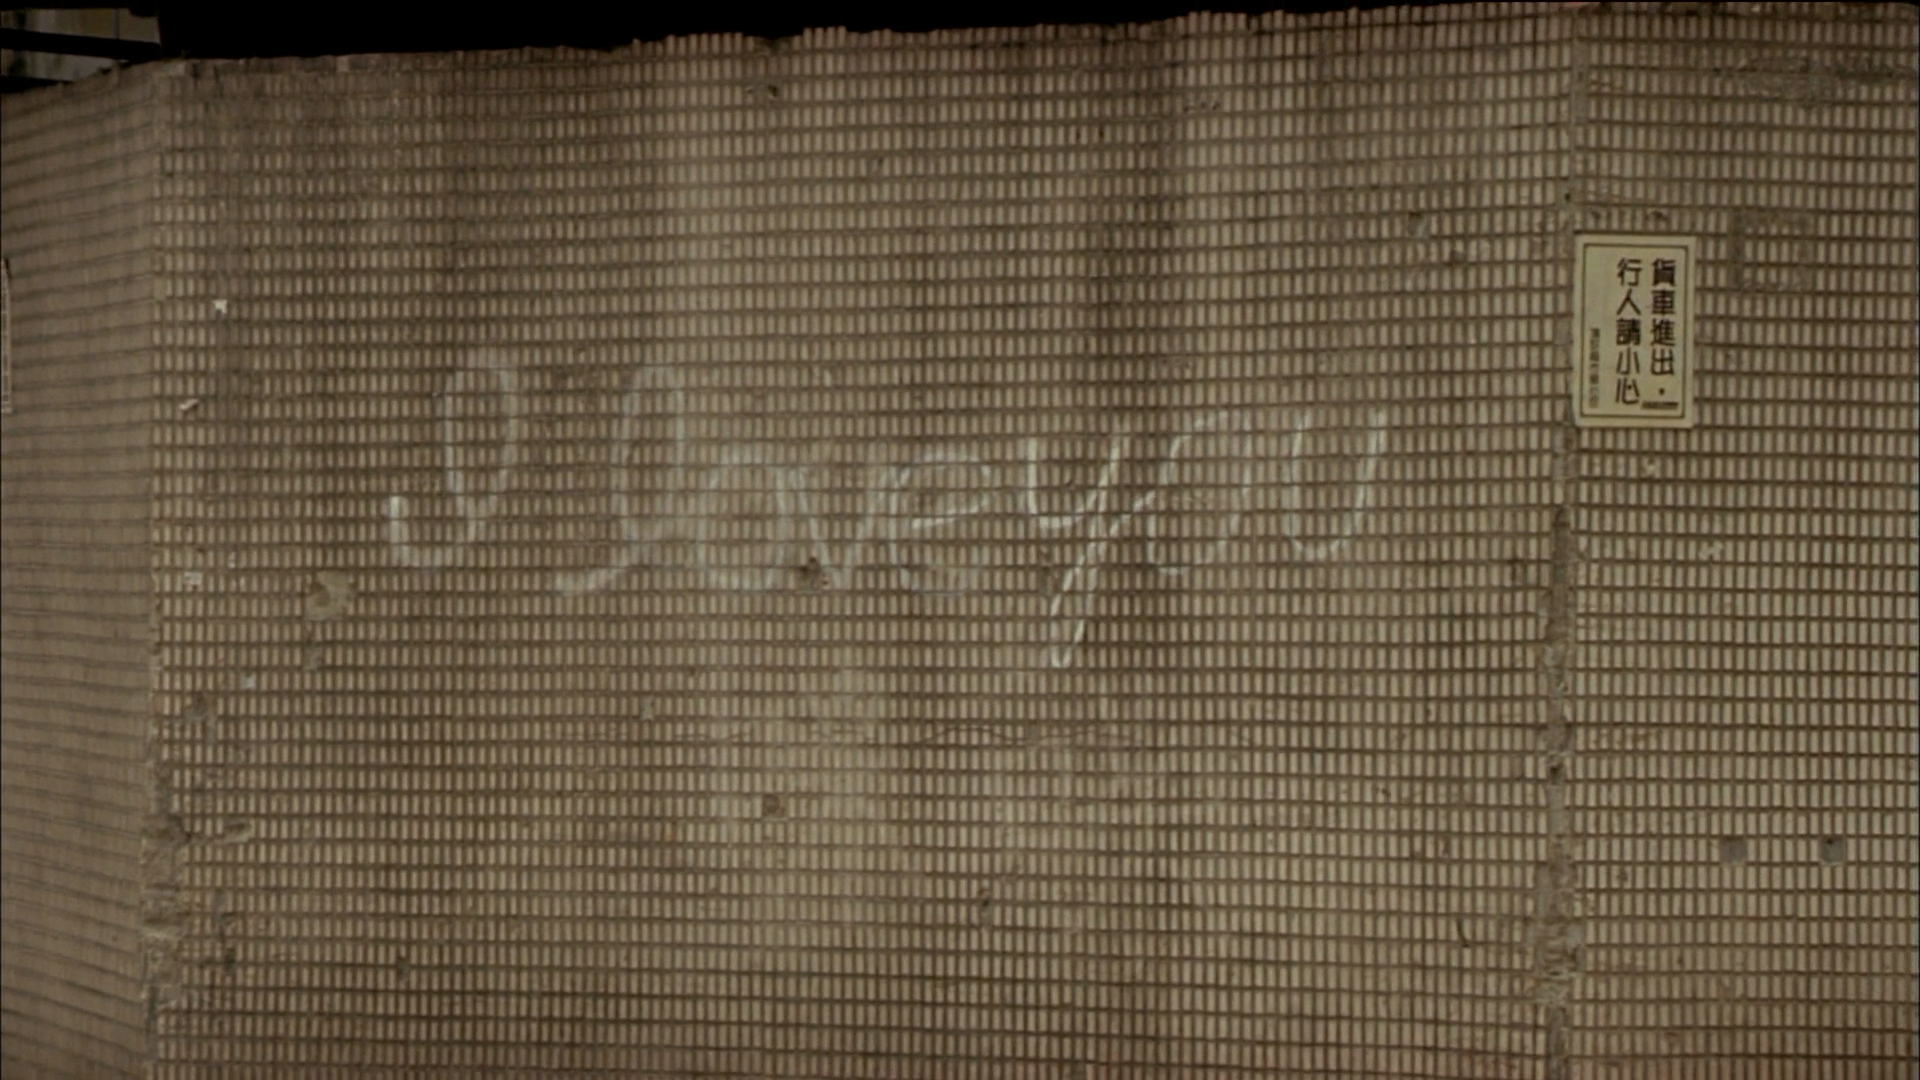 I love you
貨車進出，
行人請小心